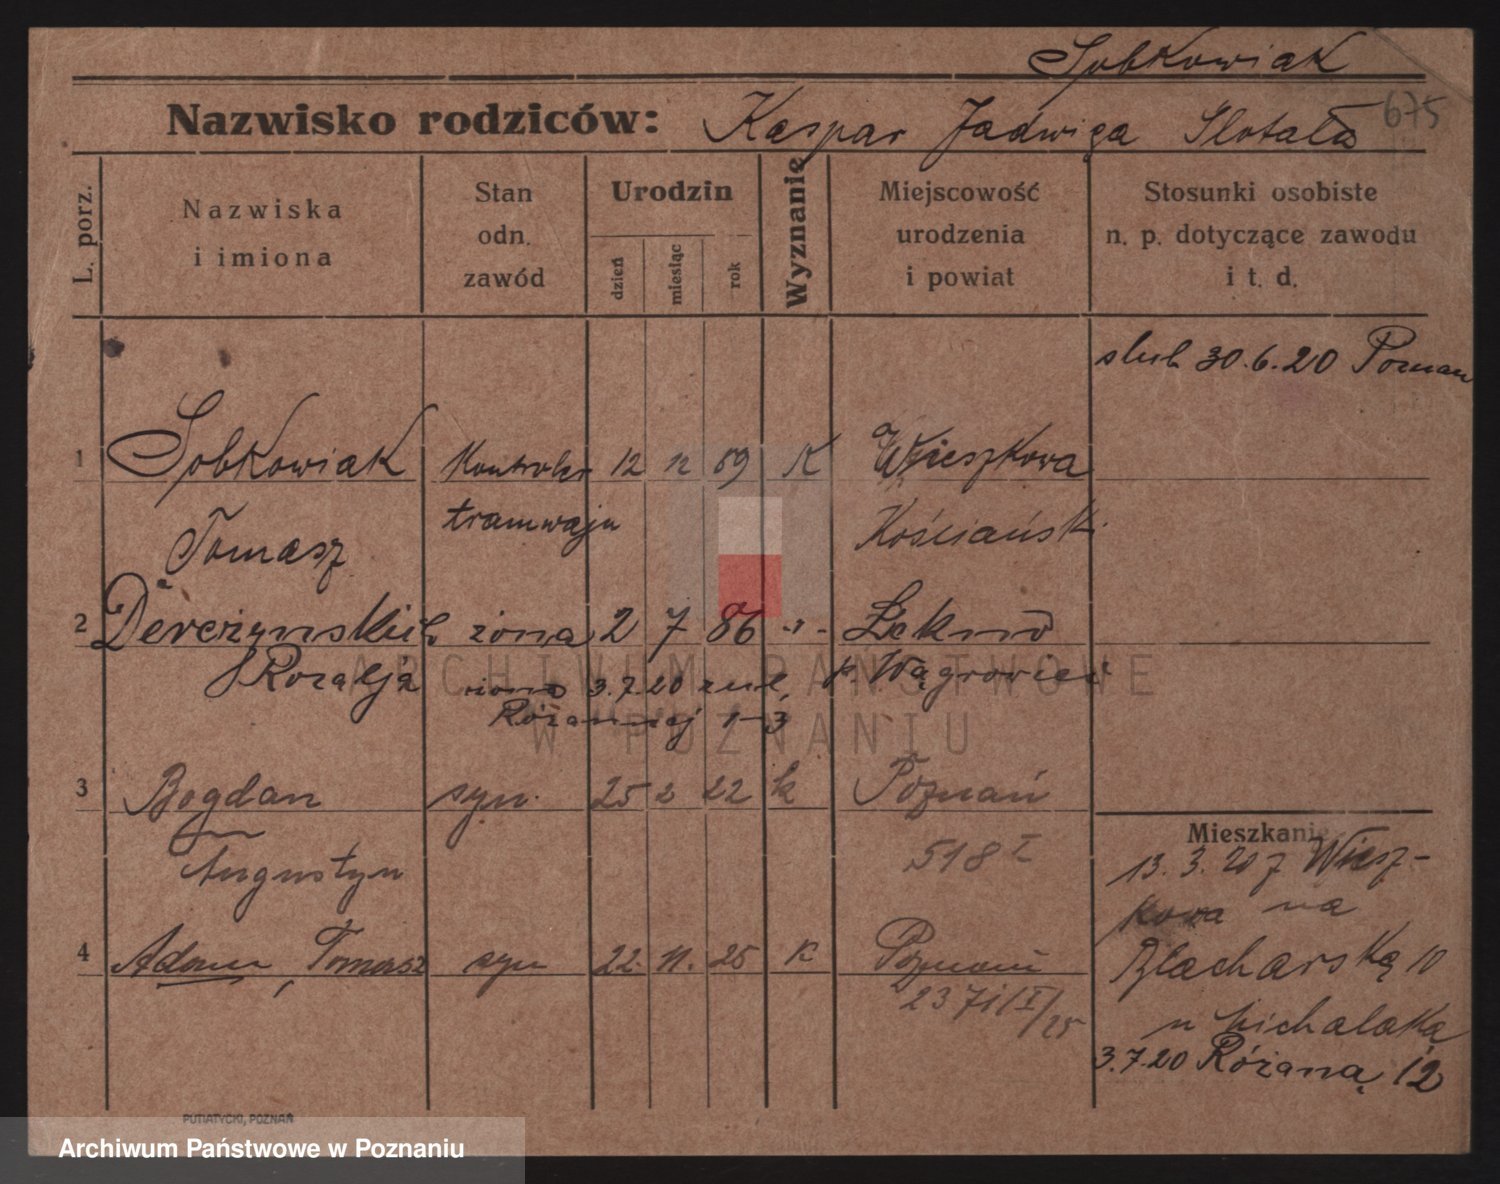 Sobkowiak
Nazwisko rodziców: Kaspar Jadwiga 675
L. porz.
Nazwiska i imiona
Stan odn. zawód
Urodzin
dzień
miesiąc
rok
Wyznanie
Miejscowość urodzenia i powiat
Stosunki osobiste n. p. dotyczące zawodu i t. d.
slub 30.6.20 Poznan
1 Sobkowiak Kontroler 12 12 89 K Wieszkowa
Tomasz tramwaju Kościański
2 żona 2 7 86 -"- Łekno
Rozalja 3.7.20 z ul. p. Wągrowiec
Różannej 1-3
3 Bogdan syn. 25 2 22 k Poznań
Augustyn 518 I
4 Adam, Tomasz syn 22. 11. 25 K Poznań
2371/I/25
Mieszkanie
13. 3. 20 z Wiesz-
kowa na
Blacharską 10
u
3.7.20 Różaną 12
PUTIATYCKI, POZNAŃ
ARCHIWUM PAŃSTWOWE
W POZNANIU
Archiwum Państwowe w Poznaniu